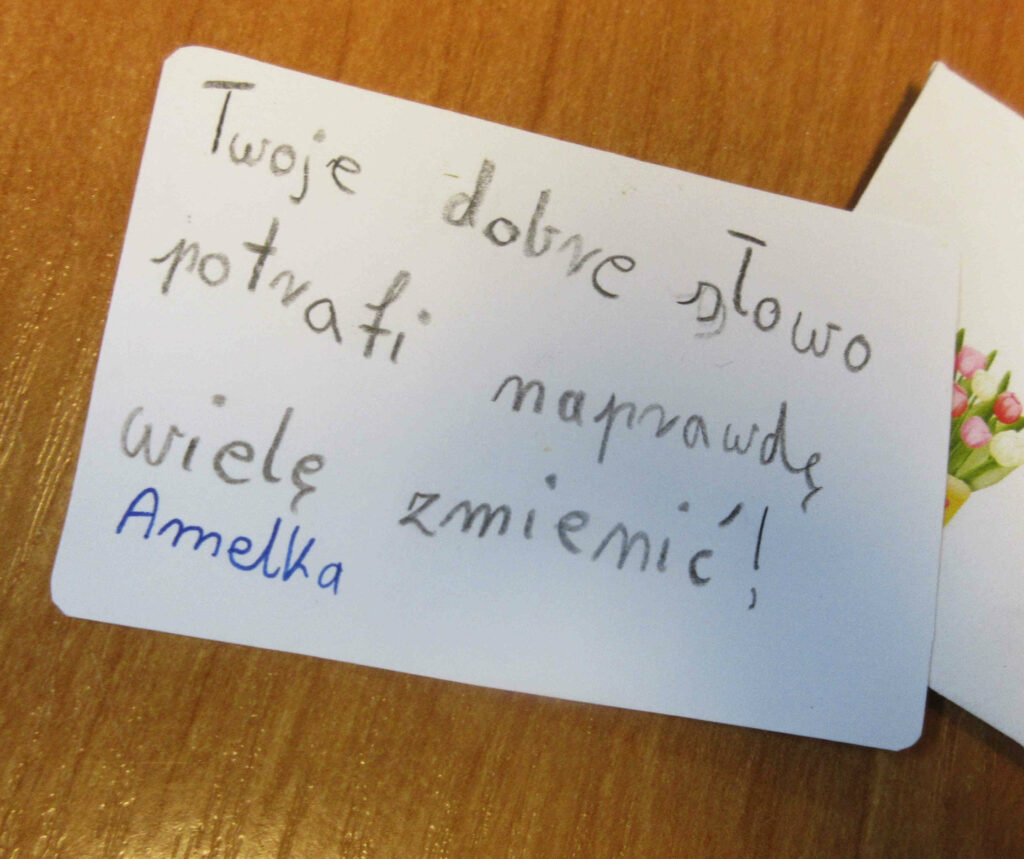 Twoje dobre słowo
potrafi naprawdę
wielę zmienić!
Amelka